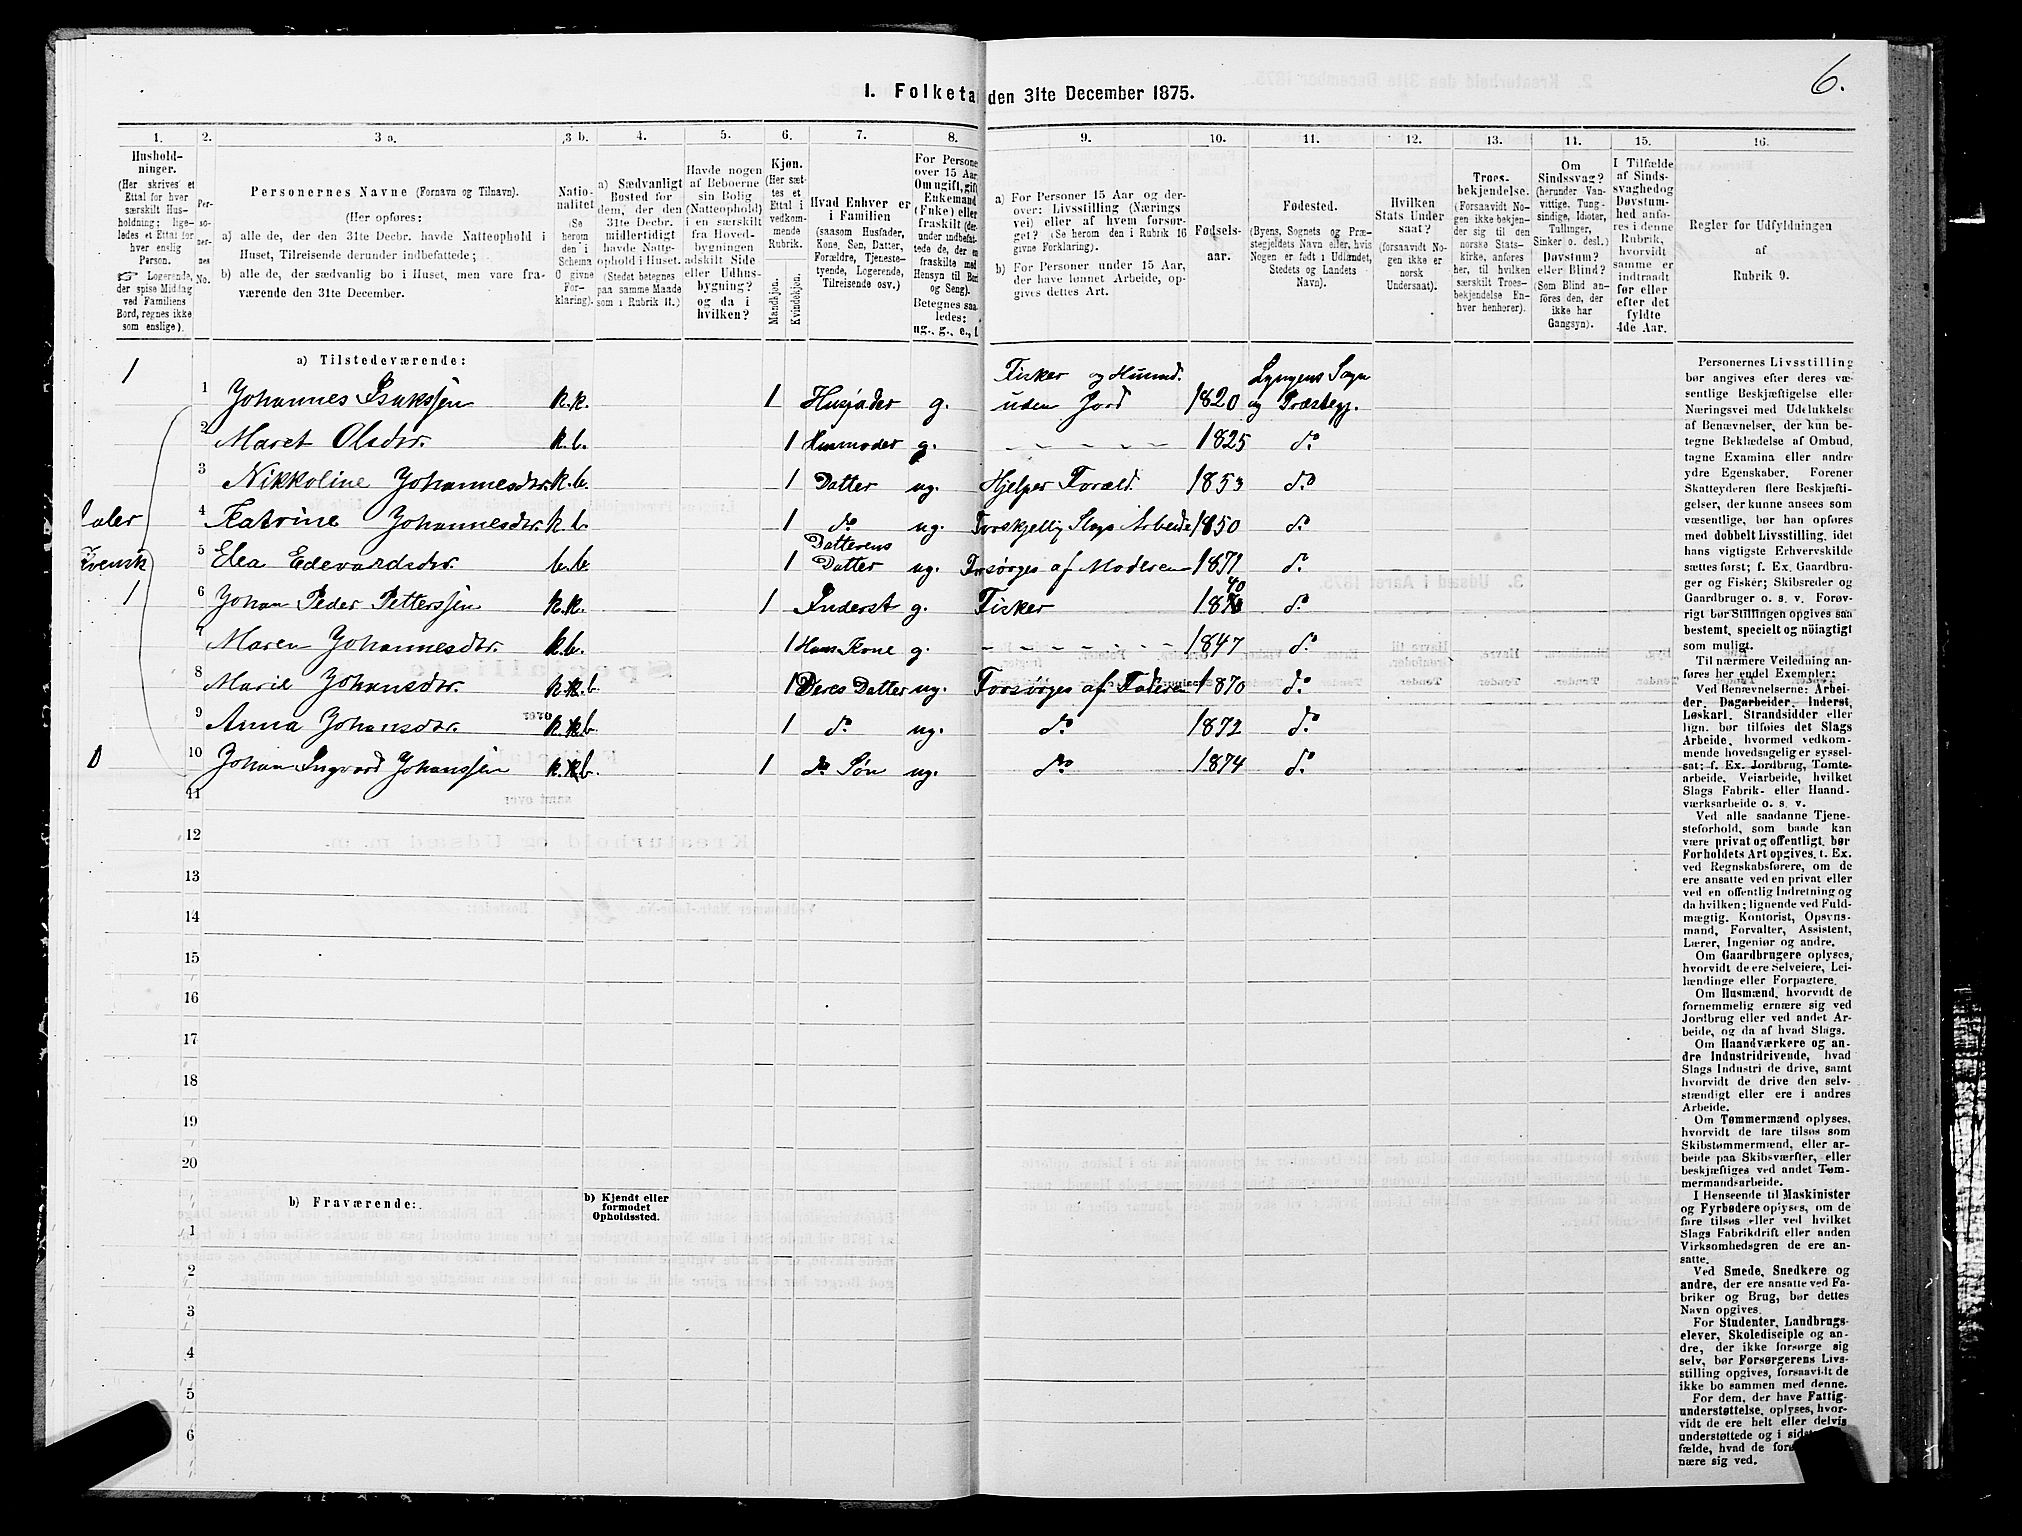 6.
1. Folketa den 31te December 1875.
1.
2.
3 a.
3 b.
4.
5.
6.
7.
8.
9.
10.
11.
12.
13.
14.
15.
16.
Hushold-
ninger.
(Her skrives et
Ettal for hver
særskilt Hus-
holdning; lige-
ledes et Ettal for
hver enslig
Person.
☞ Logerende,
der spise Middag
ved Familiens
Bord, regnes ikke
som enslige).
Per-
so-
ner-
nes
No.
Personernes Navne (Fornavn og Tilnavn).
(Her opføres:
a) alle de, der den 31te Decbr. havde Natteophold i
Huset, Tilreisende derunder indbefattede;
b) alle de, der sædvanlig bo i Huset, men vare fra-
værende den 31te December.
Natio-
nalitet
(Se
herom
den i
Schema
O givne
For-
klaring).
a) Sædvanligt
Bosted for
dem, der den
31te Decbr.
midlertidigt
havde Natte-
ophold i Huset.
(Stedet betegnes
paa samme Maade
som i Rubrik 11.)
Havde nogen
af Beboerne
sin Bolig
(Natteophold)
i en særskilt
fra Hoved-
bygningen
adskilt Side
eller Udhus-
bygning?
og da i
hvilken?
Kjøn.
(Her sæt-
tes et
Ettal i
vedkom-
mende
Rubrik.
Mandkjøn.
Kvindekjøn.
Hvad Enhver er
i Familien
(saasom Husfader,
Kone, Søn, Datter,
Forældre, Tjeneste-
tyende, Logerende,
Tilreisende osv.)
For Persone
over 15 Aar
Om ugift, gift
Enkemand
(Enke) eller
fraskilt (der-
under indbefat-
tede de, der ere
fraskilte med
Hensyn til Bord
og Seng).
Betegnes saa-
ledes:
ug., g., e., f.
a) For Personer 15 Aar og der-
over: Livsstilling (Nærings
vei) eller af hvem forsør-
get? (Se herom den i Rubrik 16
givne Forklaring).
b) For Personer under 15 Aar,
der have lønnet Arbeide, op-
gives dettes Art.
Fødsels-
aar.
Fødested.
(Byens, Sognets og Præ-
stegjeldets Navn eller, hvis
Nogen er født i Udlandet,
Stedets og Landets
Navn).
Hvilken
Stats Under
saat?
(forsaavidt No-
gen ikke er
norsk
Undersaat).
Troes-
bekjendelse.
(Forsaavidt No-
gen ikke bekjen-
der sig til den
norske Stats-
kirke, anføres
her, til hvilken
særskilt Troes-
bekjendelse En-
hver henhører).
Om
Sindssvag?
(herunder Van-
vittige, Tung-
sindige, Idioter,
Tullinger,
Sinker o. desl.)
Døvstum?
eller Blind?
(Som Blind an-
føres den, der
ikke har
Gangsyn).
I Tilfælde
af Sinds-
svaghedog
Døvstum-
hed anfø-
res i denne
Rubrik,
hvorvidt
samme er
indtraadt
før eller
efter det
fyldte
4de Aar.
Regler for Udfyldningen
af
Rubrik 9.
a) Tilstedeværende:
1 1 Johannes Isakssen k.k. 1 Husfader g. Fisker og Husmd. uden Jord 1820 Lyngens Sogn og Præstegj.
2 Maret Olsdtr. k.b. 1 Husmoder g. - - - - - 1825 do
3 Nikkoline Johannesdtr. k.b. 1 Datter ug. Hjelper Foræld. 1853 do
taler 4 Katrine Johannesdtr. k.b. 1 do ug. Forskjellig Slags Arbeide 1850 do
Kvensk 5 Elea Edevardsdtr. b.b. 1 Datterens Datter ug. Forsørges af Moderen 1871 do
1 6 Johan Peder Petterssen k.k. 1 Inderst g. Fisker 1840 do
7 Maren Johannesdtr. k.b. 1 Hans Kone g. - - - - - - 1847 do
8 Marie Johansdtr. k.k.b. 1 Deres Datter ug. Forsørges af Faderen 1870 do
9 Anna Johansdtr. k.k.b. 1 do ug. do 1872 do
0 10 Johan Ingvard Johanssen k.k.b. 1 do Søn ug. do 1874 do
11
12
13
14
15
16
17
18
19
20
b) Fraværende:
b) Kjendt eller
formodet
Opholdssted.
1
2
3
4
5
6
Personernes Livsstilling
bør angives efter deres væ-
sentlige Beskjæftigelse eller
Næringsvei med Udelukkelse
af Benævnelser, der kun be-
tegne Beklædelse af Ombud,
tagne Examina eller andre
ydre Egenskaber. Forener
Skatteyderen flere Beskjæfti-
gelser, der kunne ansees som
væsentlige, bør han opføres
med dobbelt Livsstilling, idet
hans vigtigste Erhvervskilde
sættes først; f. Ex. Gaardbru-
ger og Fisker; Skibsreder og
Gaardbruger o. s. v. Forøv-
rigt bør Stillingen opgives saa
bestemt, specielt og nöiagtigt
som muligt.
Til nærmere Veiledning an-
føres her endel Exempler:
Ved Benævnelserne: Arbei-
der, Dagarbeider, Inderst,
Løskarl, Strandsidder eller
lign. bør tilføies det Slags
Arbeide, hvormed vedkom-
mende hovedsagelig er syssel-
sat; f. Ex. Jordbrug, Tomte-
arbeide, Veiarbeide, hvilket
Slags Fabrik- eller Haand-
værksarbeide o. s. v.
Ved alle saadanne Tjene-
steforhold, som baade kan
være privat og offentligt, bør
Forholdets Art opgives, t. Ex.
ved Regnskabsførere, om de
ere ansatte ved en privat eller
ved en offentlig Indretning og
da hvilken; lignende ved Fuld-
mægtig, Kontorist, Opsyns-
mand, Forvalter, Assistent,
Lærer, Ingeniør og andre.
Om Gaardbrugere oplyses,
hvorvidt de ere Selveiere, Lei-
lændinge eller Forpagtere.
Om Husmænd, hvorvidt de
fornemmelig ernære sig ved
Jordbrug eller ved andet Ar-
beide, og da af hvad Slags.
Om Haandværkere og an-
dre Industridrivende, hvad
Slags Industri de drive, samt
hvorvidt de drive den selv-
stændigt eller ere i andres
Arbeide.
Om Tømmermænd oplyses,
hvorvidt de fare tilsøs som
Skibstømmermænd, eller ar-
beide paa Skibsværfter, eller
beskjæftiges ved andet Tøm-
mermandsarbeide.
I Henseende til Maskinister
og Fyrbødere oplyses, om de
fare tilsøs eller ved hvilket
Slags Fabrikdrift eller anden
Virksomhedsgren de ere an-
satte.
Ved Smede, Snedkere og
andre, der ere ansatte ved Fa-
briker og Brug, bør dettes
Navn opgives.
For Studenter, Landbrugs-
elever, Skoledisciple og an-
dre, der ikke forsørge sig
selv, bør Forsørgerens Livs-
stilling opgives, forsaavidt de
ikke bo sammen med denne.
For dem, der have Fattig-
understøttelse, oplyses, hvor-
vidt de ere helt eller delvis
understøttede og i
fælde, hvad de
nære sig ved.